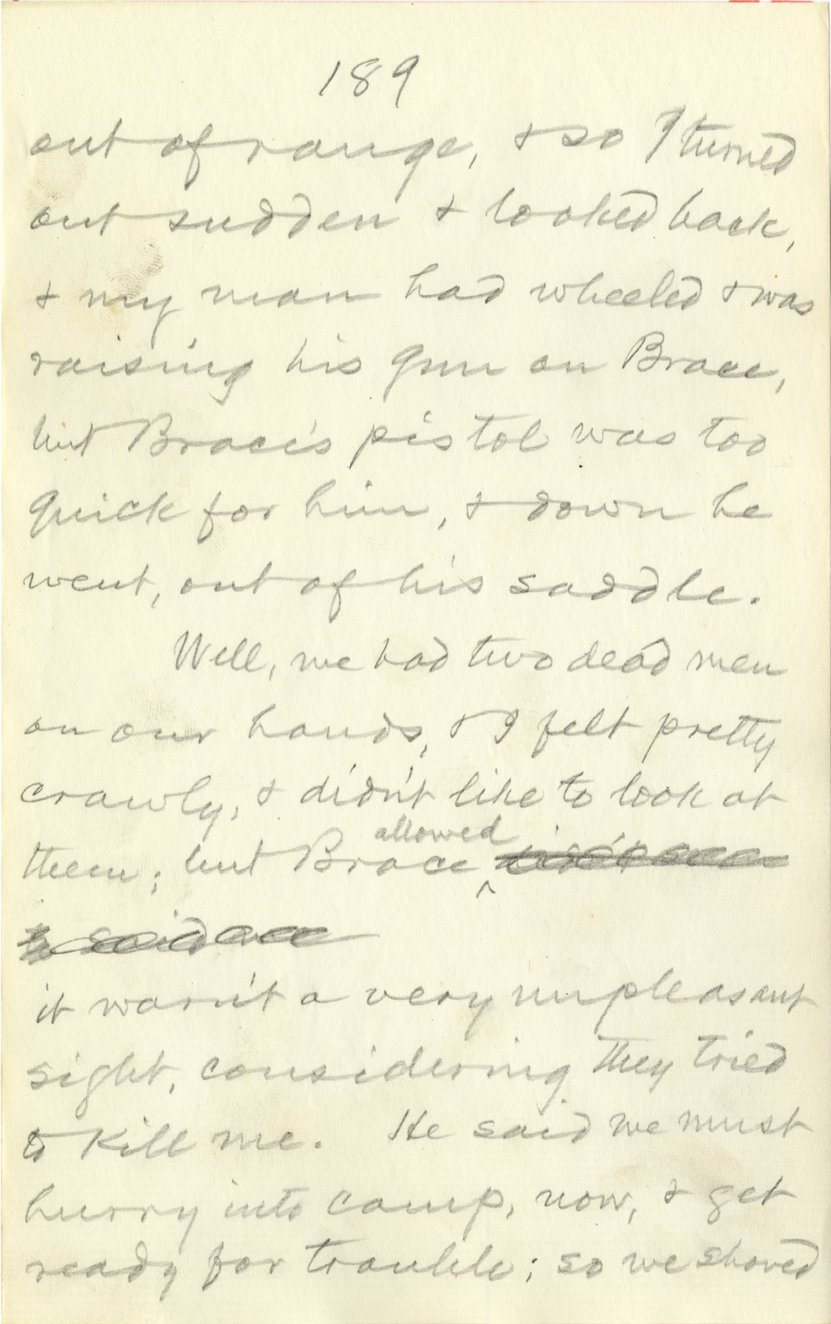 189
out of range, & so I turned
out sudden & looked back,
& my man had wheeled & was
raising his gun on Brace,
but Brace's pistol was too
quick for him, & down he
went, out of his saddle.
Well, we had two dead men
on our hands, & I felt pretty
crawly, & didn't like to look at
allowed
them; but Brace
it warn't a very unpleasant
sight, considering they tried
to kill me. He said we must
hurry into camp, now, & get
ready for trouble; so we shoved